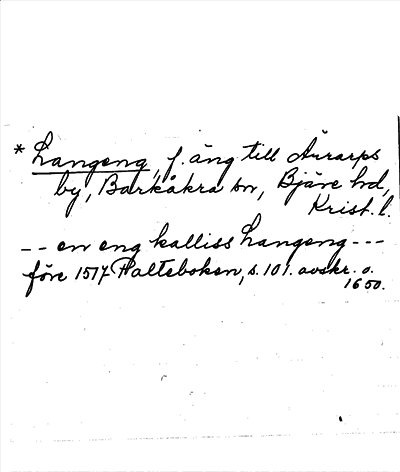 * Langeng, f. äng till Äurarps
by, Barkåkra sn, Bjäre hd,
Krist. l.
-- en eng kalliss Langeng ---
före 1517 Palteboken, s. 101. avskr. o.
1650.